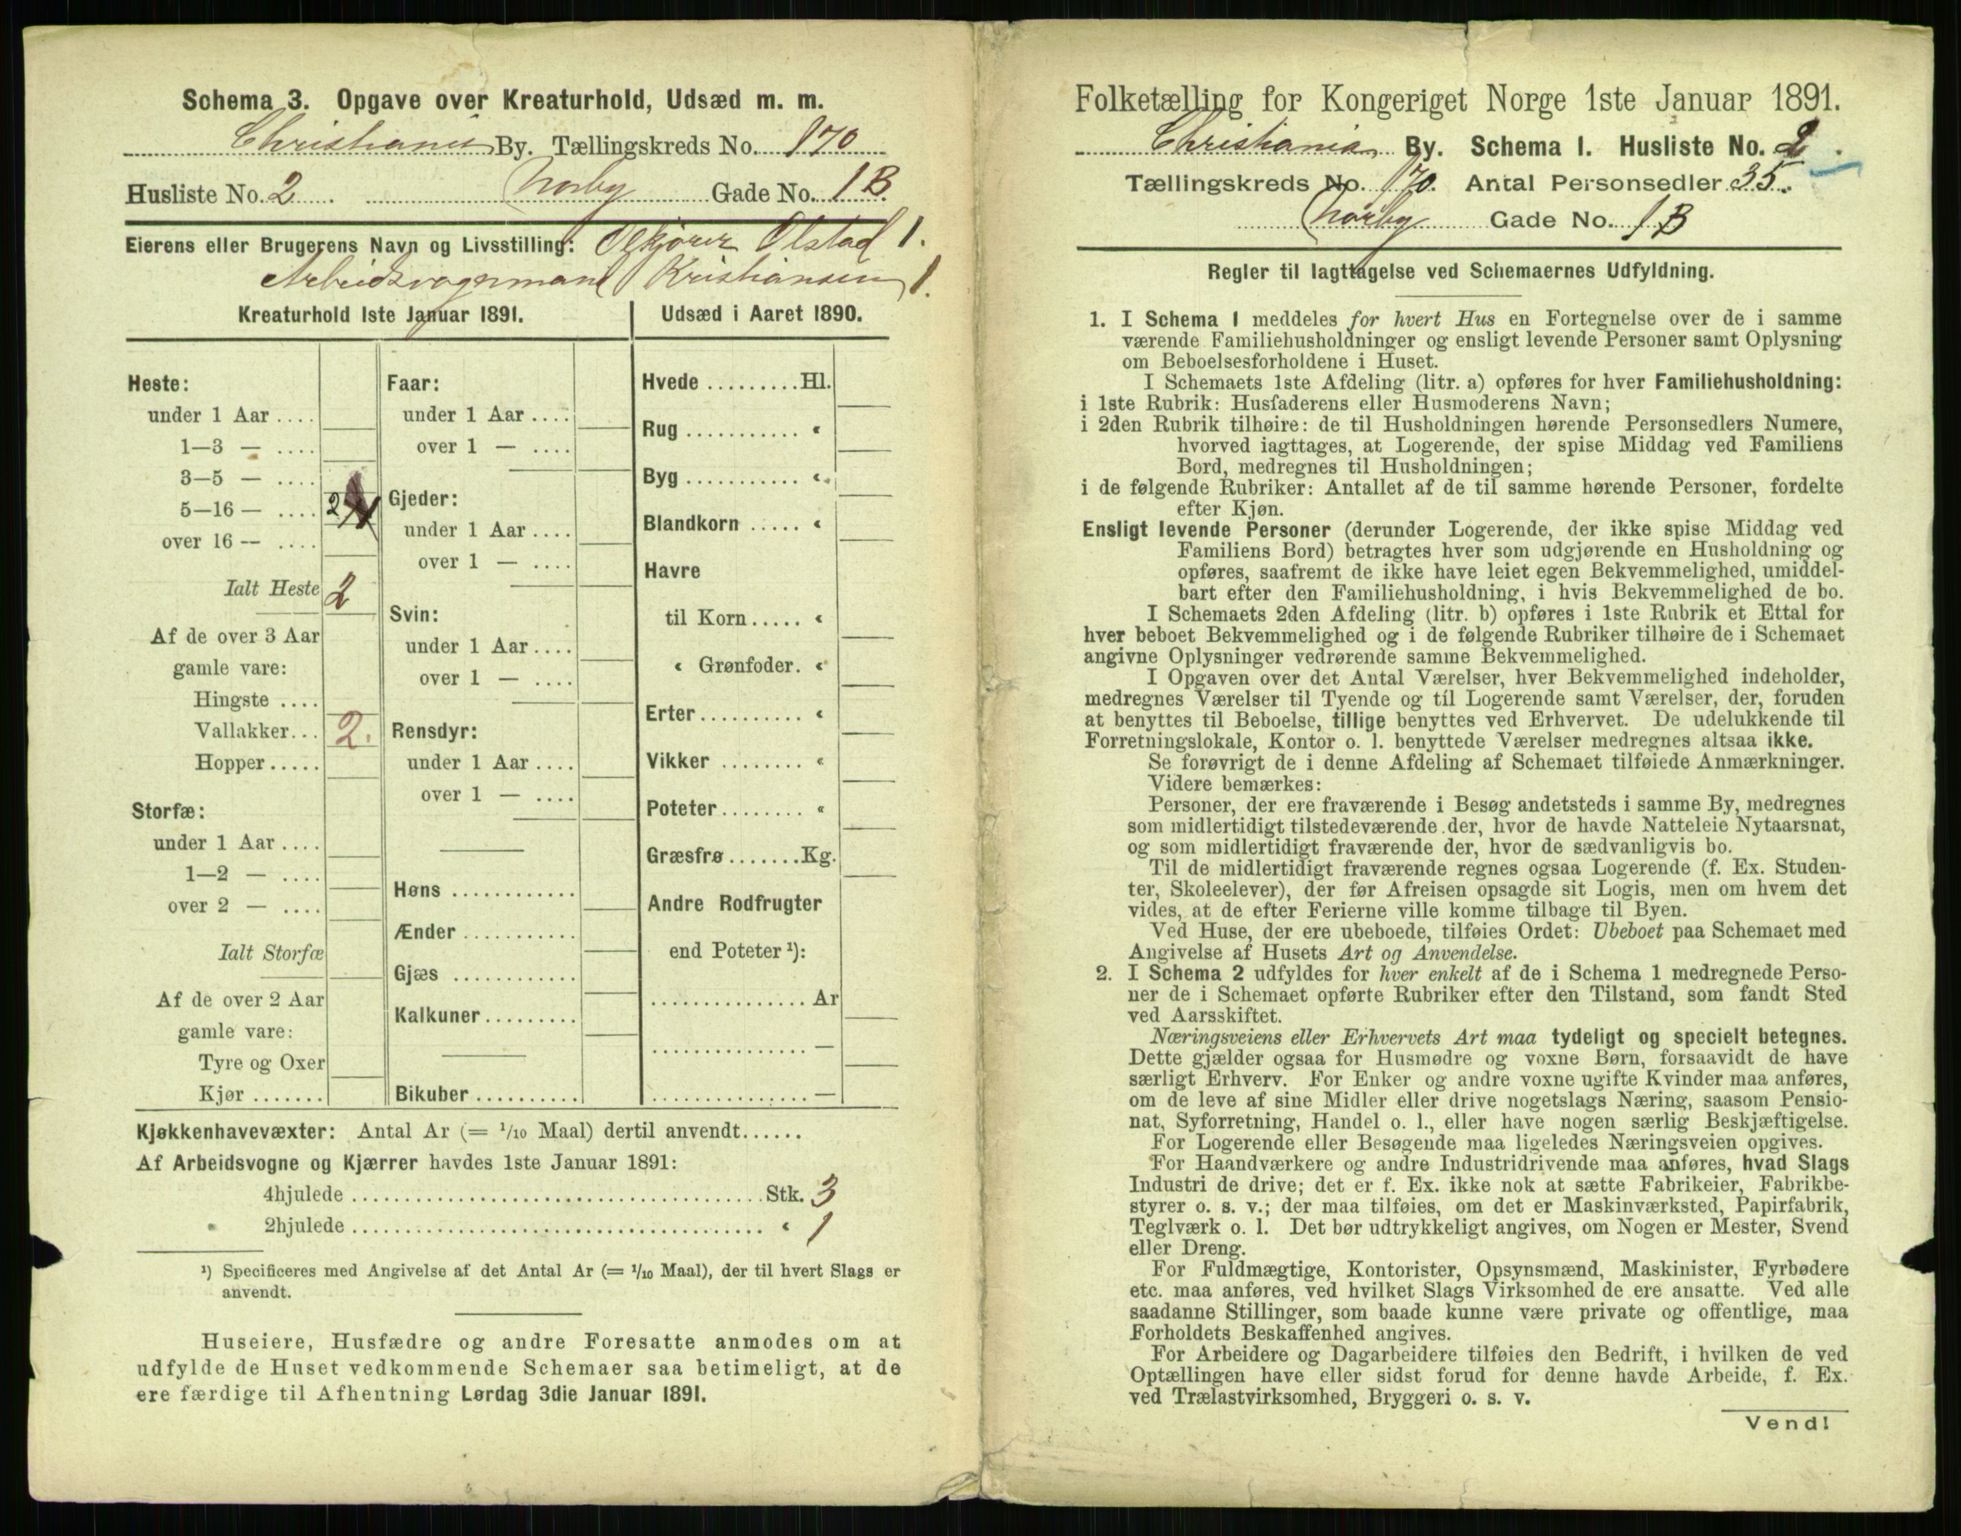 Schema 3. Opgave over Kreaturhold, Udsæd m. m.
Christiania By. Tællingskreds No. 170
Husliste No. 2 Norby Gade No. 1 B
Eierens eller Brugerens Navn og Livsstilling: Olstad 1.
Kristiansen 1.
Kreaturhold 1ste Januar 1891.
Heste:
under 1 Aar ....
1—3 — ....
3—5 — ....
5—16 — .... 2
over 16 — ....
Ialt Heste 2
Af de over 3 Aar
gamle vare:
Hingste ....
Vallakker... 2.
Hopper.....
Storfæ:
under 1 Aar ....
1—2 — ....
over 2 — ....
Ialt Storfæ
Af de over 2 Aar
gamle vare:
Tyre og Oxer
Kjør .......
Faar:
under 1 Aar ....
over 1 — ....
Gjeder:
under 1 Aar ....
over 1 — ....
Svin:
under 1 Aar ....
over 1 — ....
Rensdyr:
under 1 Aar ....
over 1 — ....
Høns ............
Ænder ...........
Gjæs ............
Kalkuner .........
Bikuber ..........
Udsæd i Aaret 1890.
Hvede .........Hl.
Rug ........... «
Byg ........... «
Blandkorn ..... «
Havre
til Korn ..... «
« Grønfoder. «
Erter .......... «
Vikker ......... «
Poteter ........ «
Græsfrø .......Kg.
Andre Rodfrugter
end Poteter ¹):
............... Ar
............... —
............... —
Kjøkkenhavevæxter: Antal Ar (= 1/10 Maal) dertil anvendt......
Af Arbeidsvogne og Kjærrer havdes 1ste Januar 1891:
4hjulede ........................................ Stk. 3
2hjulede ........................................ « 1
¹) Specificeres med Angivelse af det Antal Ar (= 1/10 Maal), der til hvert Slags er
anvendt.
Huseiere, Husfædre og andre Foresatte anmodes om at
udfylde de Huset vedkommende Schemaer saa betimeligt, at de
ere færdige til Afhentning Lørdag 3die Januar 1891.
Folketælling for Kongeriget Norge 1ste Januar 1891.
Christiania By. Schema 1. Husliste No. 2.
Tællingskreds No. 170. Antal Personsedler 35.
Norby Gade No. 1 B
Regler til Iagttagelse ved Schemaernes Udfyldning.
1. I Schema 1 meddeles for hvert Hus en Fortegnelse over de i samme
værende Familiehusholdninger og ensligt levende Personer samt Oplysning
om Beboelsesforholdene i Huset.
I Schemaets 1ste Afdeling (litr. a) opføres for hver Familiehusholdning:
i 1ste Rubrik: Husfaderens eller Husmoderens Navn;
i 2den Rubrik tilhøire: de til Husholdningen hørende Personsedlers Numere,
hvorved iagttages, at Logerende, der spise Middag ved Familiens
Bord, medregnes til Husholdningen;
i de følgende Rubriker: Antallet af de til samme hørende Personer, fordelte
efter Kjøn.
Ensligt levende Personer (derunder Logerende, der ikke spise Middag ved
Familiens Bord) betragtes hver som udgjørende en Husholdning og
opføres, saafremt de ikke have leiet egen Bekvemmelighed, umiddel-
bart efter den Familiehusholdning, i hvis Bekvemmelighed de bo.
I Schemaets 2den Afdeling (litr. b) opføres i 1ste Rubrik et Ettal for
hver beboet Bekvemmelighed og i de følgende Rubriker tilhøire de i Schemaet
angivne Oplysninger vedrørende samme Bekvemmelighed.
I Opgaven over det Antal Værelser, hver Bekvemmelighed indeholder,
medregnes Værelser til Tyende og til Logerende samt Værelser, der, foruden
at benyttes til Beboelse, tillige benyttes ved Erhvervet. De udelukkende til
Forretningslokale, Kontor o. l. benyttede Værelser medregnes altsaa ikke.
Se forøvrigt de i denne Afdeling af Schemaet tilføiede Anmærkninger.
Videre bemærkes:
Personer, der ere fraværende i Besøg andetsteds i samme By, medregnes
som midlertidigt tilstedeværende der, hvor de havde Natteleie Nytaarsnat,
og som midlertidigt fraværende der, hvor de sædvanligvis bo.
Til de midlertidigt fraværende regnes ogsaa Logerende (f. Ex. Studen-
ter, Skoleelever), der før Afreisen opsagde sit Logis, men om hvem det
vides, at de efter Ferierne ville komme tilbage til Byen.
Ved Huse, der ere ubeboede, tilføies Ordet: Ubeboet paa Schemaet med
Angivelse af Husets Art og Anvendelse.
2. I Schema 2 udfyldes for hver enkelt af de i Schema 1 medregnede Perso-
ner de i Schemaet opførte Rubriker efter den Tilstand, som fandt Sted
ved Aarsskiftet.
Næringsveiens eller Erhvervets Art maa tydeligt og specielt betegnes.
Dette gjælder ogsaa for Husmødre og voxne Børn, forsaavidt de have
særligt Erhverv. For Enker og andre voxne ugifte Kvinder maa anføres,
om de leve af sine Midler eller drive nogetslags Næring, saasom Pensio-
nat, Syforretning, Handel o. l., eller have nogen særlig Beskjæftigelse.
For Logerende eller Besøgende maa ligeledes Næringsveien opgives.
For Haandværkere og andre Industridrivende maa anføres, hvad Slags
Industri de drive; det er f. Ex. ikke nok at sætte Fabrikeier, Fabrikbe-
styrer o. s. v.; der maa tilføies, om det er Maskinværksted, Papirfabrik,
Teglværk o. l. Det bør udtrykkeligt angives, om Nogen er Mester, Svend
eller Dreng.
For Fuldmægtige, Kontorister, Opsynsmænd, Maskinister, Fyrbødere
etc. maa anføres, ved hvilket Slags Virksomhed de ere ansatte. Ved alle
saadanne Stillinger, som baade kunne være private og offentlige, maa
Forholdets Beskaffenhed angives.
For Arbeidere og Dagarbeidere tilføies den Bedrift, i hvilken de ved
Optællingen have eller sidst forud for denne havde Arbeide, f. Ex.
ved Trælastvirksomhed, Bryggeri o. s. v.
Vend!